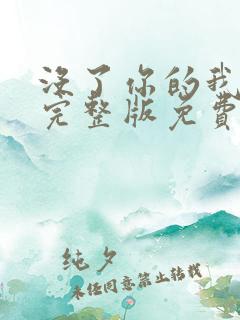 没了你的我
完整版免費
纯夕
未经同意禁止转载